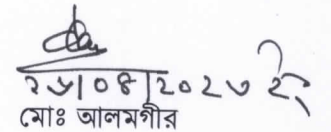 ২৬|০৪|২০২৩ ইং
মোঃ আলমগীর